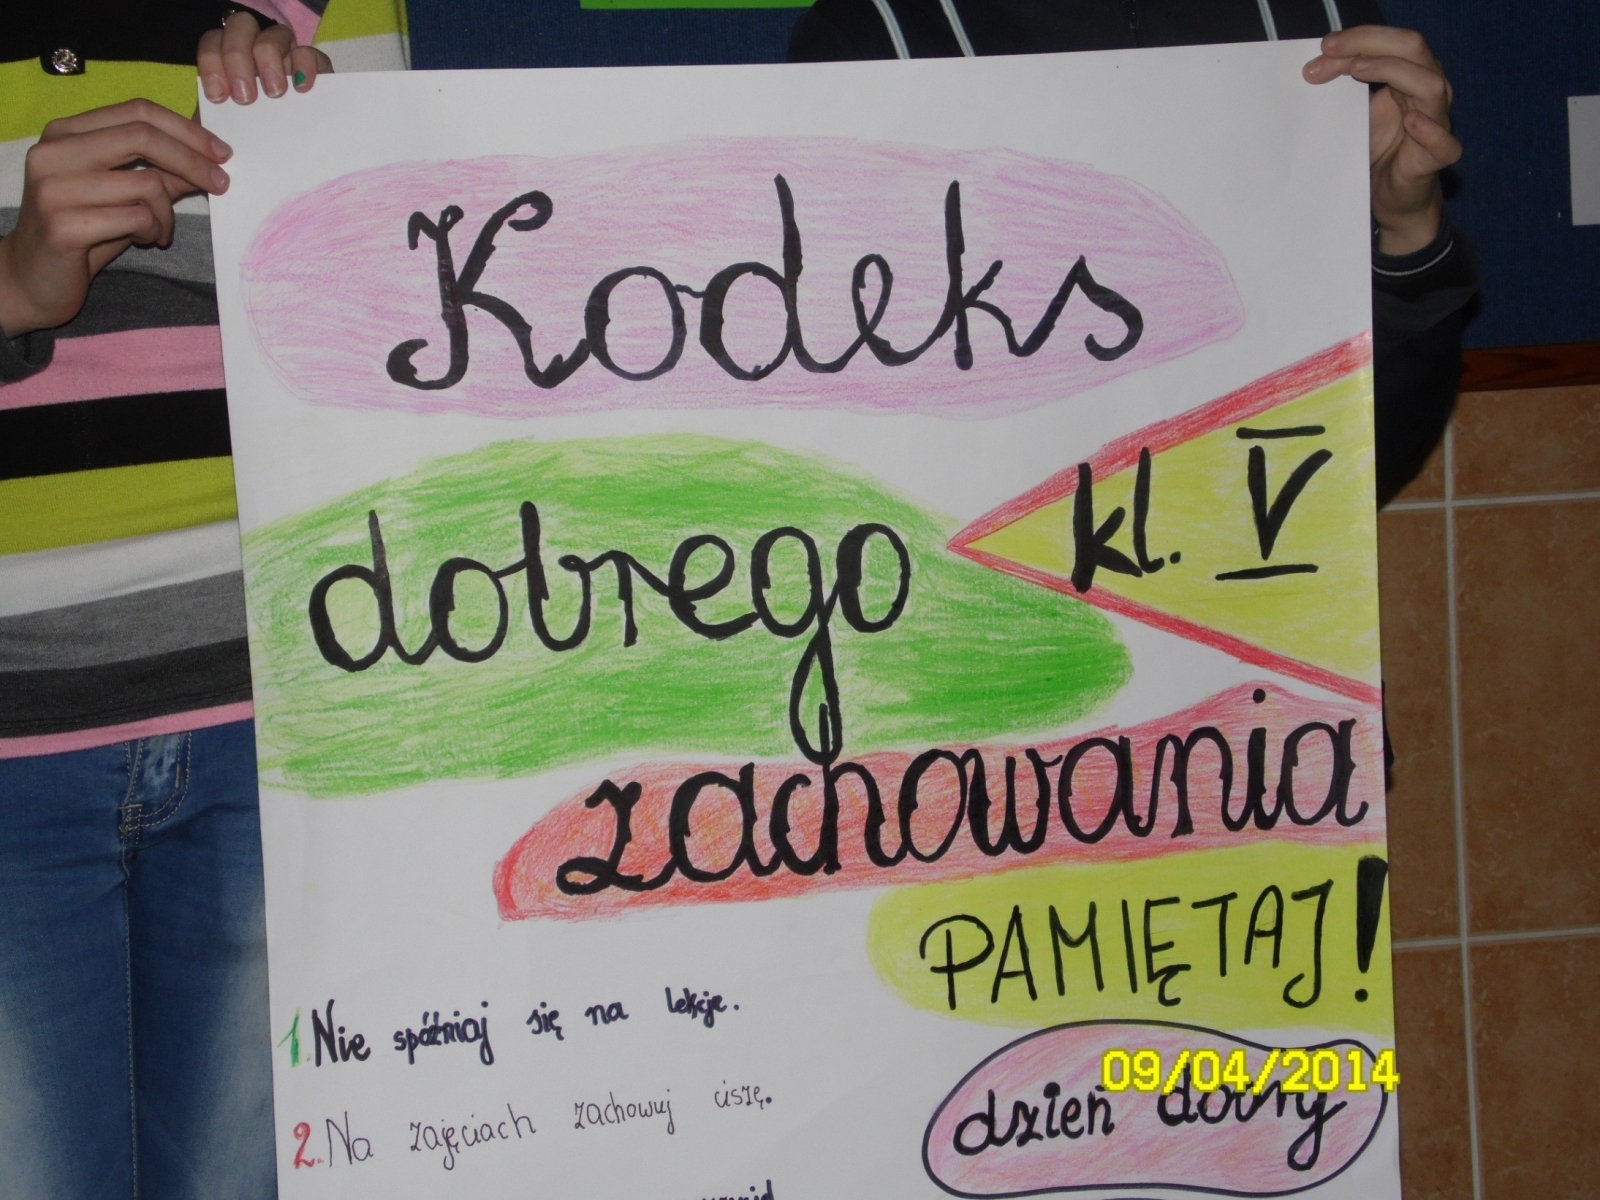 Kodeks
dobrego
kl. V
zachowania
PAMIĘTAJ!
1. Nie spóźniaj się na lekcje.
2. Na zajęciach zachowuj ciszę.
09/04/2014
dzień dobry